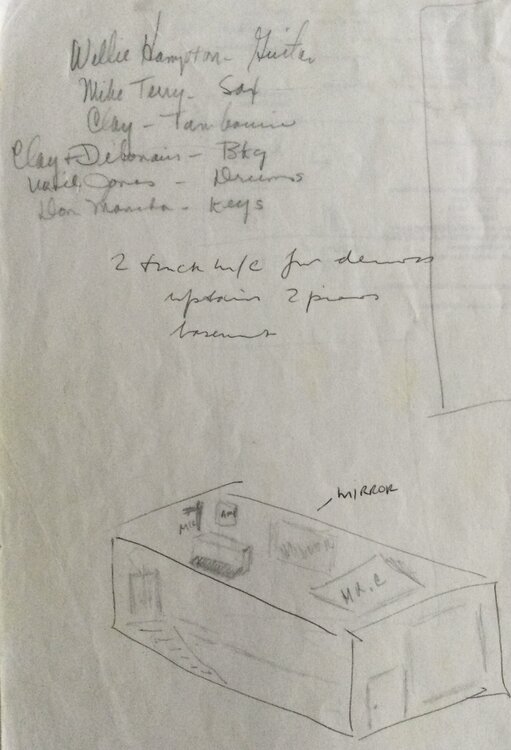 Willie Hampton - Guitar
Mike Terry - Sax
Clay - Tambourine
Clay + Debonairs - Bkg
Jones - Drums
Don - Keys
2 track m/c for demos
upstairs 2 pianos
basement
MIRROR
MIC
AMP
MIRROR